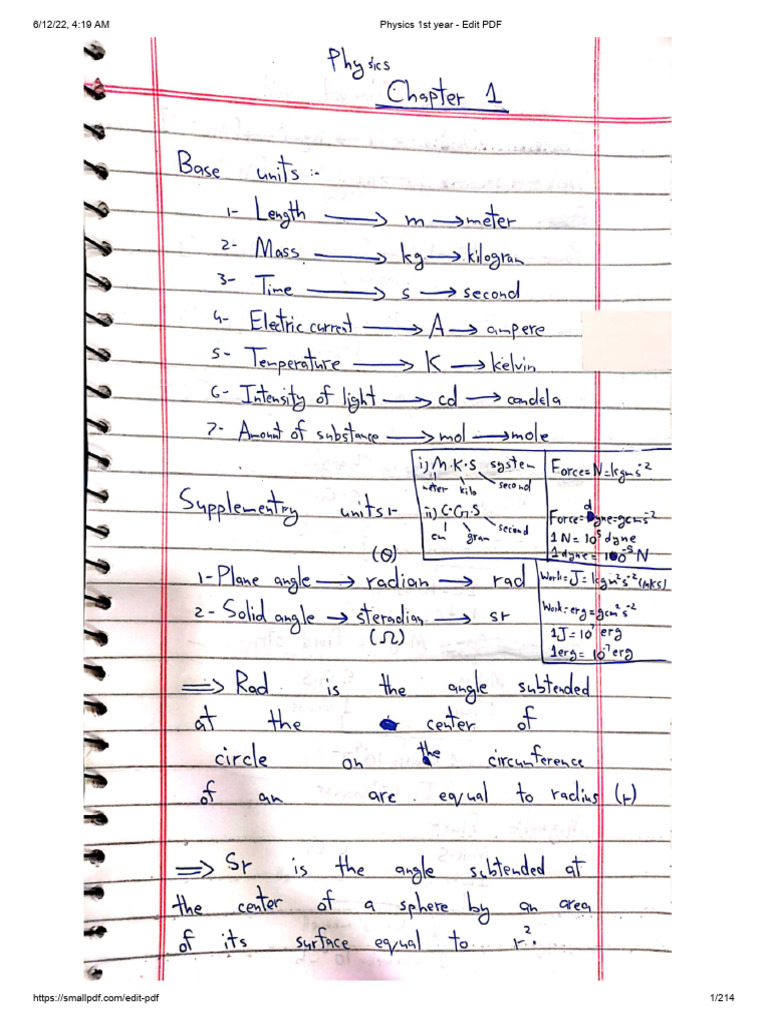 6/12/22, 4:19 AM
Physics 1st year - Edit PDF
Physics
Chapter 1
Base units :-
1- Length → m → meter
2- Mass → kg → kilogram
3- Time → s → second
4- Electric current → A → ampere
5- Temperature → K → kelvin
6- Intensity of light → cd → candela
7- Amount of substance → mol → mole
i) M.K.S system
meter kilo second
ii) C.G.S
cm gram second
Force=N=kgms⁻²
Force=dyne=gcms⁻²
1N=10⁵dyne
1dyne=10⁻⁵N
Supplementry units:-
(θ)
1-Plane angle → radian → rad
2-Solid angle → steradian → sr
(Ω)
Work=J=kgm²s⁻²(MKS)
Work=erg=gcm²s⁻²
1J=10⁷erg
1erg=10⁻⁷erg
⇒ Rad is the angle subtended
at the center of
circle on the circumference
of an arc equal to radius (r)
⇒ Sr is the angle subtended at
the center of a sphere by an area
of its surface equal to r².
https://smallpdf.com/edit-pdf
1/214